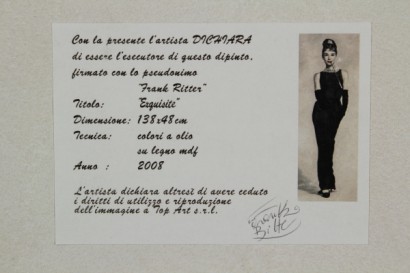 Con la presente l'artista DICHIARA
di essere l'esecutore di questo dipinto,
firmato con lo pseudonimo
"Frank Ritter"
Titolo: "Exquisite"
Dimensione: 138x48cm
Tecnica: colori a olio
su legno mdf
Anno : 2008
L'artista dichiara altresì di avere ceduto
i diritti di utilizzo e riproduzione
dell'immagine a Top Art s.r.l.